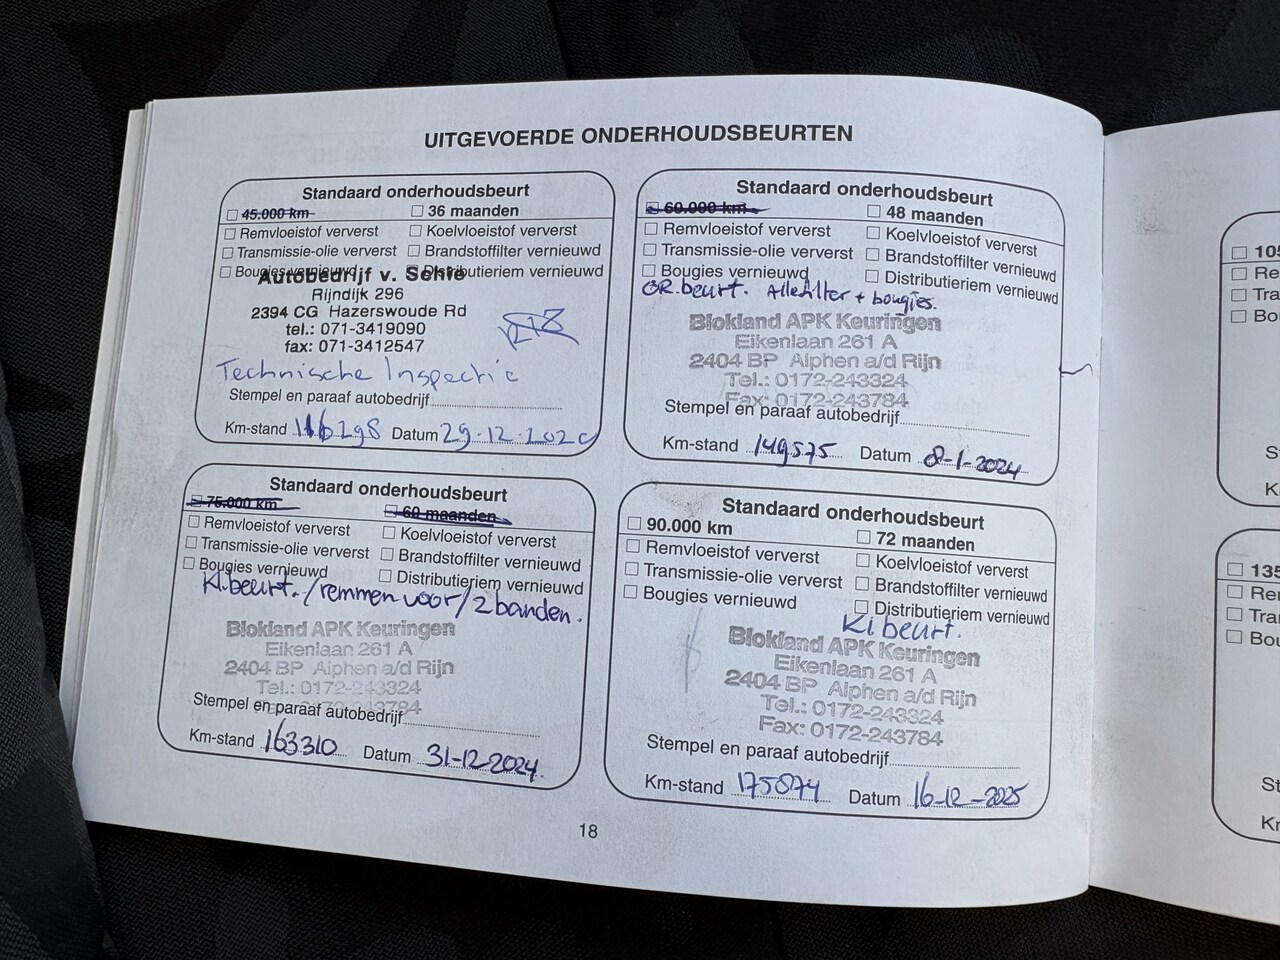 UITGEVOERDE ONDERHOUDSBEURTEN
Standaard onderhoudsbeurt
45.000 km 36 maanden
Remvloeistof ververst Koelvloeistof ververst
Transmissie-olie ververst Brandstoffilter vernieuwd
Bougies vernieuwd Distributieriem vernieuwd
Autobedrijf v. Schie
Rijndijk 296
2394 CG Hazerswoude Rd
tel.: 071-3419090
fax: 071-3412547
Technische Inspectie
Stempel en paraaf autobedrijf
Km-stand 116298 Datum 29-12-2020
Standaard onderhoudsbeurt
60.000 km 48 maanden
Remvloeistof ververst Koelvloeistof ververst
Transmissie-olie ververst Brandstoffilter vernieuwd
Bougies vernieuwd Distributieriem vernieuwd
GR.beurt. Allefilter + bougies.
Blokland APK Keuringen
Eikenlaan 261 A
2404 BP Alphen a/d Rijn
Tel.: 0172-243324
Fax: 0172-243784
Stempel en paraaf autobedrijf
Km-stand 149575 Datum 8-1-2024
Standaard onderhoudsbeurt
75.000 km 60 maanden
Remvloeistof ververst Koelvloeistof ververst
Transmissie-olie ververst Brandstoffilter vernieuwd
Bougies vernieuwd Distributieriem vernieuwd
Kl.beurt./remmen voor/2 banden.
Blokland APK Keuringen
Eikenlaan 261 A
2404 BP Alphen a/d Rijn
Tel.: 0172-243324
Fax: 0172-243784
Stempel en paraaf autobedrijf
Km-stand 163310 Datum 31-12-2024.
Standaard onderhoudsbeurt
90.000 km 72 maanden
Remvloeistof ververst Koelvloeistof ververst
Transmissie-olie ververst Brandstoffilter vernieuwd
Bougies vernieuwd Distributieriem vernieuwd
Kl beurt.
Blokland APK Keuringen
Eikenlaan 261 A
2404 BP Alphen a/d Rijn
Tel.: 0172-243324
Fax: 0172-243784
Stempel en paraaf autobedrijf
Km-stand 175874 Datum 16-12-2025
18
105
Re
Tra
Bo
S
K
135
Rei
Tra
Bou
St
Kr